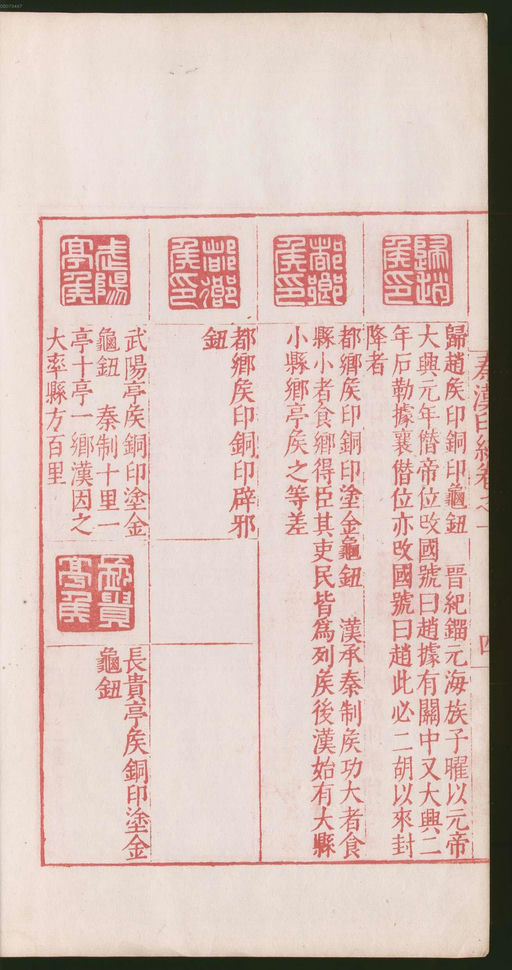 00073447
秦漢印統卷之一
四
歸趙侯印
歸趙矦印銅印龜鈕　晋紀鎦元海族子曜以元帝
大興元年僣帝位改國號曰趙據有關中又大興二
年石勒據襄僣位亦改國號曰趙此必二胡以來封
降者
都鄉侯印
都鄉矦印銅印塗金龜鈕　漢承秦制矦功大者食
縣小者食鄉得臣其吏民皆爲列矦後漢始有大縣
小縣鄉亭矦之等差
都鄉侯印
都鄉矦印銅印辟邪
鈕
武陽亭侯
武陽亭矦銅印塗金
龜鈕　秦制十里一
亭十亭一鄉漢因之
大率縣方百里
長貴亭侯
長貴亭矦銅印塗金
龜鈕